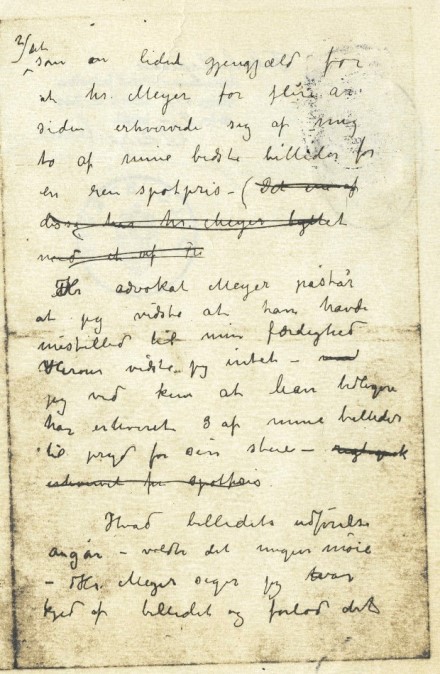 2/ at
som en liden gjengjæld for
at hr. Meyer for flere år
siden erhvervede seg af mig
to af mine bedste billeder for
en ren spotpris – (Det ene af
disse har hr. Meyer byttet
med et af
Hr advokat Meyer påstår
at jeg vidste at han havde
mistillid til min færdighed
Herom vidste jeg intet –
jeg ved kun at han tidligere
har erhvervet 3 af mine billeder
til pryd for sin stue –
erhvervet for spotpris
Hvad billedets udførelse
angår – voldte det ingen møie
– Hr. Meyer siger jeg var
kjed af billedet og forlod det